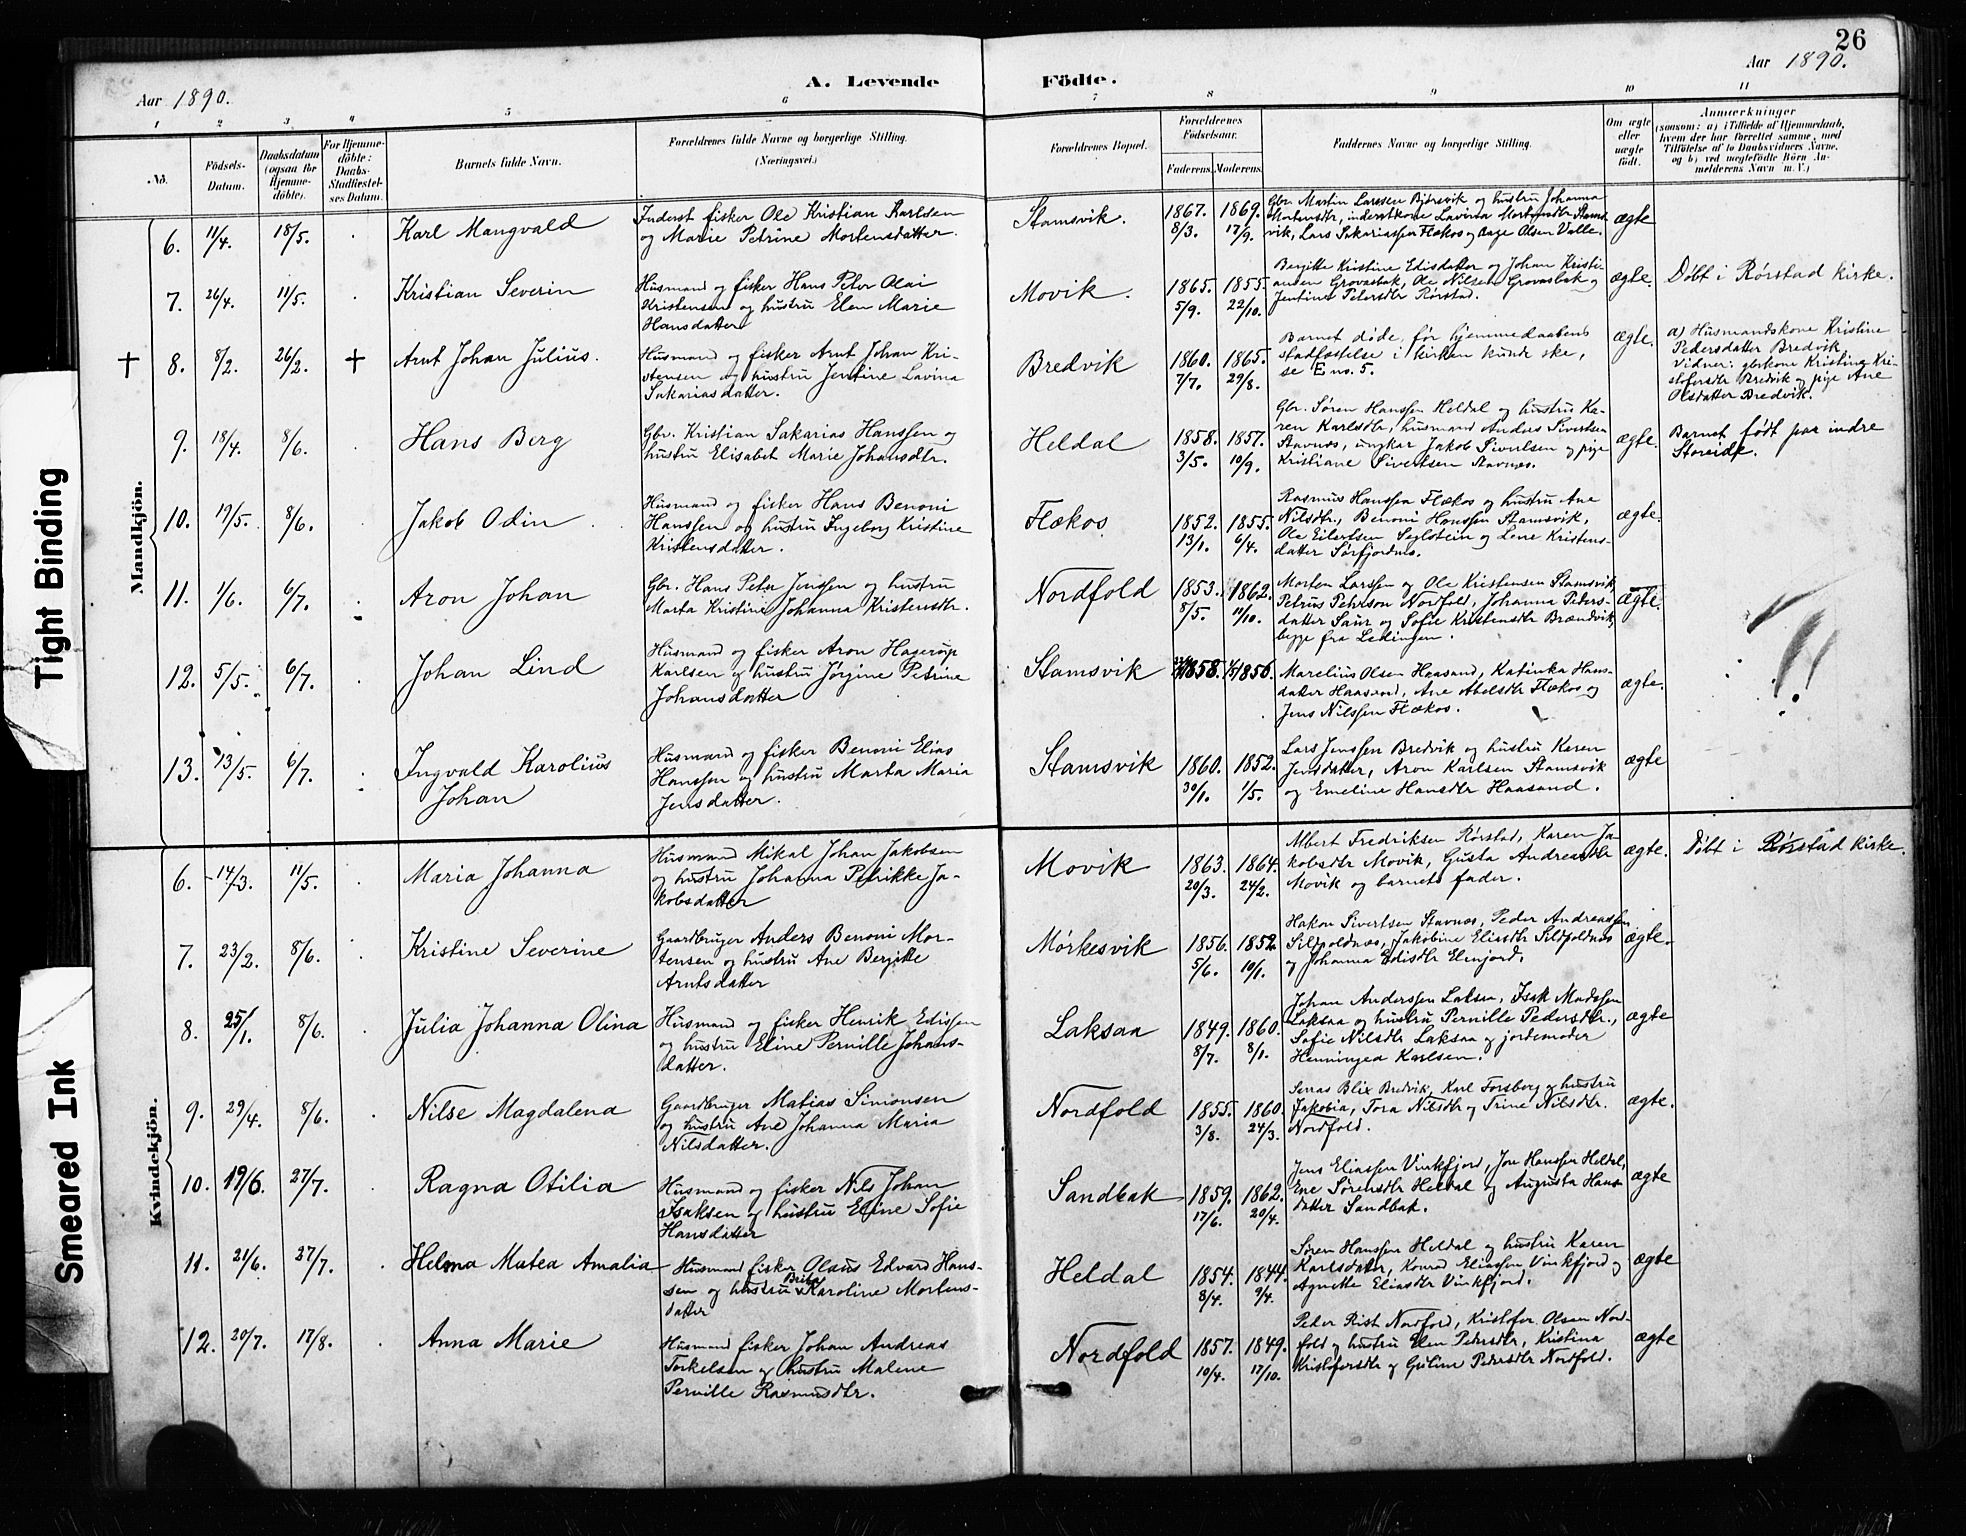 26
Aar 1890.
A. Levende Födte.
Aar 1890.
1 2 3 4 5 6 7 8 9 10 11
No.
Födsels-
Datum.
Daabsdatum
(ogsaa for
Hjemme-
döbte).
For Hjemme-
döbte:
Daabs-
Stadfæstel-
ses Datum.
Barnets fulde Navn.
Forældrenes fulde Navne og borgerlige Stilling.
(Næringsvei.)
Forældrenes Bopæl.
Forældrenes
Födselsaar.
Faderens. Moderens.
Faddernes Navne og borgerlige Stilling.
Om ægte
eller
uægte
födt.
Anmærkninger
(saasom: a) i Tilfælde af Hjemmedaab,
hvem der har forrettet samme, med
Tilföielse af to Daabsvidners Navne,
og b) ved uægtefödte Börn An-
melderens Navn m. V.)
Mandkjön.
6. 11/4. 18/5. Karl Mangvald
Inderst fisker Ole Kristian Karlsen
og Marie Petrine Mortensdatter.
Stamsvik. 1867. 8/3. 1869. 17/9.
Gbr. Martin Larssen Bjørsvik og hustru Johanna
Mortensdtr, inderstkone Lavina Mortensdtr Stams-
vik, Lars Sakariassen Flækos og Aage Olsen Valle.
ægte
7. 26/4. 11/5. Kristian Severin
Husmand og fisker Hans Peter Olai
Kristensen og hustru Elen Marie
Hansdatter
Movik. 1865. 5/9. 1855. 22/10.
Bergitte Kristine Edisdatter og Johan Kristi-
ansen Grovasbak, Ole Nilsen Grovasbak og
Jentine Petersdtr Rørstad.
ægte. Døbt i Rørstad kirke.
† 8. 8/2. 26/2. † Arnt Johan Julius.
Husmand og fisker Arnt Johan Kri-
stensen og hustru Jentine Lavina
Sakariasdatter.
Bredvik 1860. 7/7. 1865. 29/8.
Barnet døde, før hjemmedaabens
stadfæstelse i kirken kunde ske,
se E no. 5.
ægte.
a) Husmandskone Kristine
Pedersdatter Bredvik
Vidner: gbrkone Kristine Kri-
stofersdtr Bredvik og pige Ane
Olsdatter Bredvik.
9. 18/4. 8/6. Hans Berg
Gbr. Kristian Sakarias Hanssen og
hustru Elisabet Marie Johansdtr.
Heldal 1858. 3/5. 1857. 10/9.
Gbr. Søren Hanssen Heldal og hustru Ka-
ren Karlsdtr, husmand Anders Sivertsen
Stavnæs, ungkar Jakob Sivertsen og pige
Kristiane Sivertsen Stavnæs.
ægte. Barnet født paa indre
Storeide.
10. 19/5. 8/6. Jakob Odin
Husmand og fisker Hans Benoni
Hanssen og hustru Ingeborg Kristine
Kristensdatter.
Flækos 1852. 13/1. 1855. 6/4.
Rasmus Hanssen Flækos og hustru Ane
Nilsdtr., Benoni Hanssen Stamsvik,
Ole Eilertsen Seglstein og Lene Kristens-
datter Sørfjordnes.
ægte.
11. 1/6. 6/7. Aron Johan
Gbr. Hans Peter Jenssen og hustru
Marta Kristine Johanna Kristensdtr.
Nordfold 1853. 8/5. 1862. 11/10.
Morten Larssen og Ole Kristensen Stamsvik,
Petrus Peterson Nordfold, Johanna Peders-
datter Saur og Sofie Kristensdtr Brændvik,
begge fra Lødingen.
ægte.
12. 5/5. 6/7. Johan Lind
Husmand og fisker Aron Hagerup
Karlsen og hustru Jørgine Petrine
Johansdatter
Stamsvik 1858. 1856.
Marelius Olsen Haasand, Katinka Hans-
datter Haasand, Ane Abelsdtr Flækos og
Jens Nilssen Flækos.
ægte.
13. 13/5. 6/7. Ingvald Karolius
Johan
Husmand og fisker Benoni Elias
Hanssen og hustru Marta Maria
Jensdatter.
Stamsvik 1860. 30/1. 1852. 1/5.
Lars Jenssen Bredvik og hustru Karen
Jensdatter, Aron Karlsen Stamsvik
og Emeline Hansdtr Haasand.
ægte
Kvindekjön.
6. 14/3. 11/5. Maria Johanna
Husmand Mikal Johan Jakobsen
og hustru Johanna Petrikke Ja-
kobsdatter
Movik 1863. 20/3. 1864. 24/2.
Albert Fredriksen Rørstad, Karen Ja-
kobsdtr Movik, Gusta Andreasdtr
Movik og barnets fader.
ægte. Døbt i Rørstad kirke.
7. 23/2. 8/6. Kristine Severine
Gaardbruger Anders Benoni Mor-
tensen og hustru Ane Bergitte
Arntsdatter
Mørkesvik 1856. 5/6. 1852. 10/1.
Hakon Sivertsen Stavnæs, Peder Andreassen
Sildpoldnæs, Jakobine Eliasdtr Sildpoldnæs
og Johanna Edisdtr Elvfjord.
ægte.
8. 25/1. 8/6. Julia Johanna Olina
Husmand og fisker Henrik Edissen
og hustru Eline Pernille Johans-
datter.
Laksaa 1849. 8/7. 1860. 8/1.
Johan Anderssen Laksaa, Isak Madssen
Laksaa og hustru Pernille Pedersdtr.,
Sofie Nilsdtr Laksaa og jordemoder
Henninged Karlsen.
ægte
9. 29/4. 8/6. Nilse Magdalena
Gaardbruger Matias Simonsen
og hustru Ane Johanna Maria
Nilsdatter.
Nordfold 1855. 3/8. 1860. 24/3.
Jenas Blix Bredvik, Karl Forsberg og hustru
Jakobia, Tora Nilsdtr og Trine Nilsdtr.
Nordfold.
ægte.
10. 19/6. 27/7. Ragna Otilia
Husmand og fisker Nils Johan
Isaksen og hustru Eline Sofie
Hansdatter
Sandbak 1859. 17/6. 1862. 20/4.
Jens Eliassen Vinkfjord, Jon Hanssen Heldal,
Ene Sørensdtr Heldal og Augusta Hans-
datter Sandbak.
ægte
11. 21/6. 27/7. Helma Matea Amalia
Husmand fisker Olaus Edvard Hans-
sen og hustru Brita Karoline Mortens-
datter
Heldal 1854. 8/4. 1844. 9/4.
Søren Hanssen Heldal og hustru Karen
Karlsdatter, Konrad Eliassen Vinkfjord og
Agnette Eliasdtr Vinkfjord.
ægte
12. 20/7. 17/8. Anna Marie
Husmand fisker Johan Andreas
Torkelsen og hustru Malene
Pernille Rasmusdtr.
Nordfold 1857. 10/4. 1849. 17/10.
Peder Rist Nordfold, Kristofer Olsen Nord-
fold og hustru Elen Petersdtr, Kristina
Kristofersdtr og Guline Petersdtr Nordfold.
ægte
Tight Binding
Smeared Ink